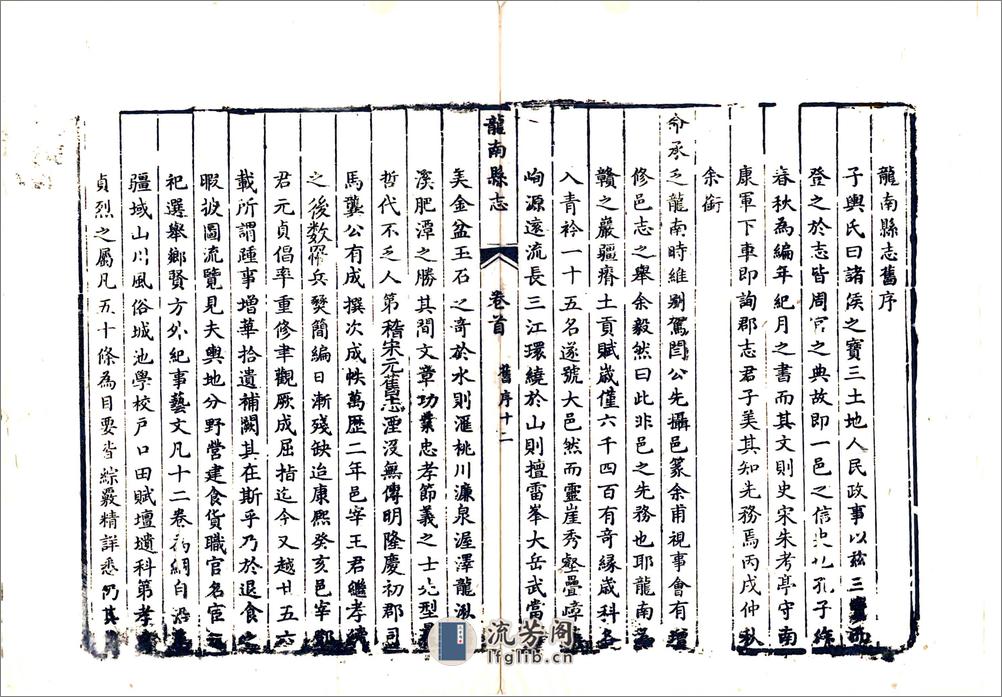 龍南縣志舊序
子輿氏曰諸侯之寶三土地人民政事以茲三
登之於志皆周官之典故即一邑之信史孔子作
春秋為編年紀月之書而其文則史宋朱考亭守南
康軍下車即詢郡志君子美其知先務焉丙戌仲秋
余銜
命承乏龍南時維劉駕閆公先攝邑篆余甫視事會有
修邑志之舉余毅然曰此非邑之先務也耶龍南
贛之巖疆瘠土貢賦歲僅六千四百有奇緣歲科
入青衿一十五名遂號大邑然而靈崖秀壑疊嶂
岣源遠流長三江環繞於山則擅雷峯大岳武當
龍南縣志
卷首
舊序十二
美金盆玉石之奇於水則滙桃川濂泉渥澤龍
溪肥潭之勝其間文章功業忠孝節義之士
哲代不乏人第稽宋元舊志湮沒無傳明隆慶初郡司
馬龔公有成撰次成帙萬歷二年邑宰王君繼孝續
之後數罹兵燹簡編日漸殘缺迨康熙癸亥邑宰鄭
君元貞倡率重修聿觀厥成屈指迄今又越廿五六
載所謂踵事增華拾遺補闕其在斯乎乃於退食之
暇披圖流覽見夫輿地分野營建食貨職官名宦
祀選舉鄉賢方外紀事藝文凡十二卷為綱自沿
疆域山川風俗城池學校戶口田賦壇壝科第孝
貞烈之屬凡五十條為目要皆綜覈精詳悉仍其
流芳阁
lfglib.cn